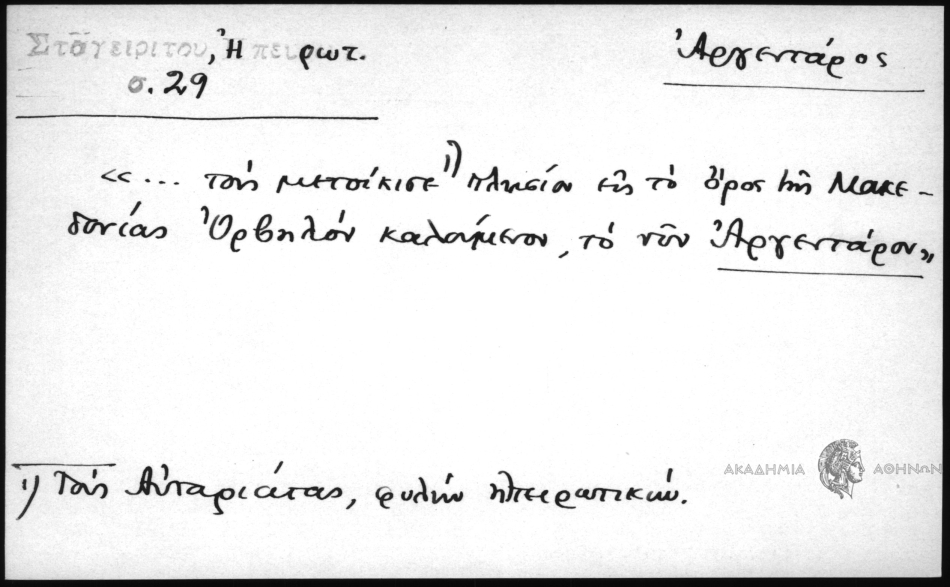 Σταγειρίτου, Ἠπειρωτ.
σ. 29
Ἀργεντάρος
«... τούς μετοίκισε ¹) πλησίον εἰς τό ὄρος τῆς Μακε-
δονίας Ὀρβηλόν καλούμενον, τό νῦν Ἀργεντάρον»
¹) Τούς Αὐταριάτας, φυλήν ἠπειρωτικήν.
ΑΚΑΔΗΜΙΑ ΑΘΗΝΩΝ